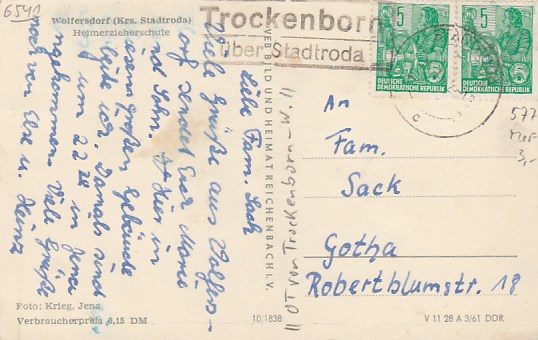 6541
Wolfersdorf (Krs. Stadtroda)
Heimerzieherschule
Trockenborn
über Stadtroda
5
5
DEUTSCHE
DEMOKRATISCHE REPUBLIK
DEUTSCHE
DEMOKRATISCHE REPUBLIK
Liebe Fam. Sack
Viele Grüße aus Wolfers-
dorf sendet Euch Maria
und Sohn. Hier in
diesem großen Gebäude
bin ich. Damals sind
wir um 22 in Jena
angekommen. Viele Grüße
noch von Else u. Heinz
VEB BILD UND HEIMAT REICHENBACH I. V.
11 OT von Trockenborn-W. 11
An
Fam.
Sack
Gotha
Robertblumstr. 18
577
3,-
Foto: Krieg, Jena
Verbraucherpreis 0,15 DM
10/1838
V 11 28 A 3/61 DDR